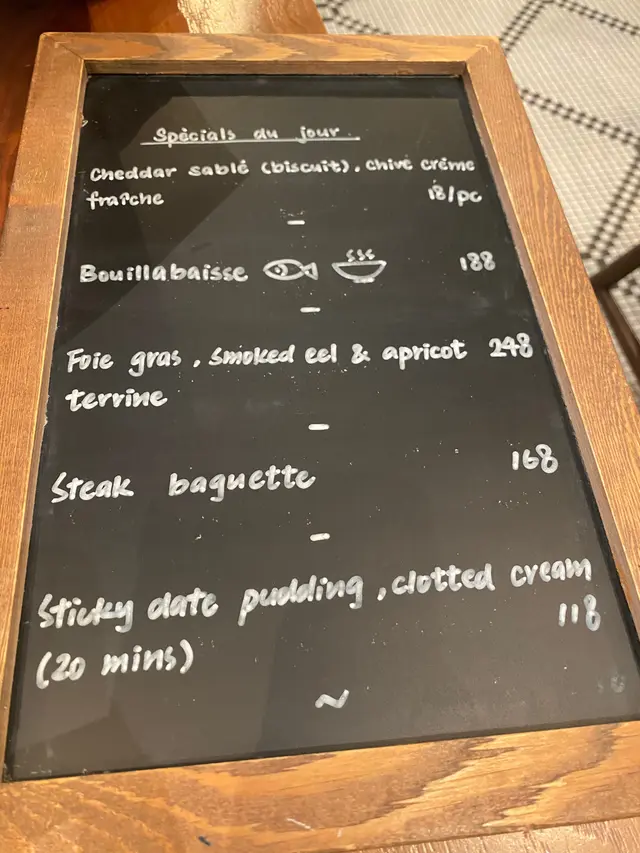 Spècials du jour.
Cheddar sablé (biscuit), chive créme
fraîche 18/pc
Bouillabaisse 188
Foie gras, smoked eel & apricot 248
terrine
Steak baguette 168
Sticky date pudding, clotted cream
118
(20 mins)
~